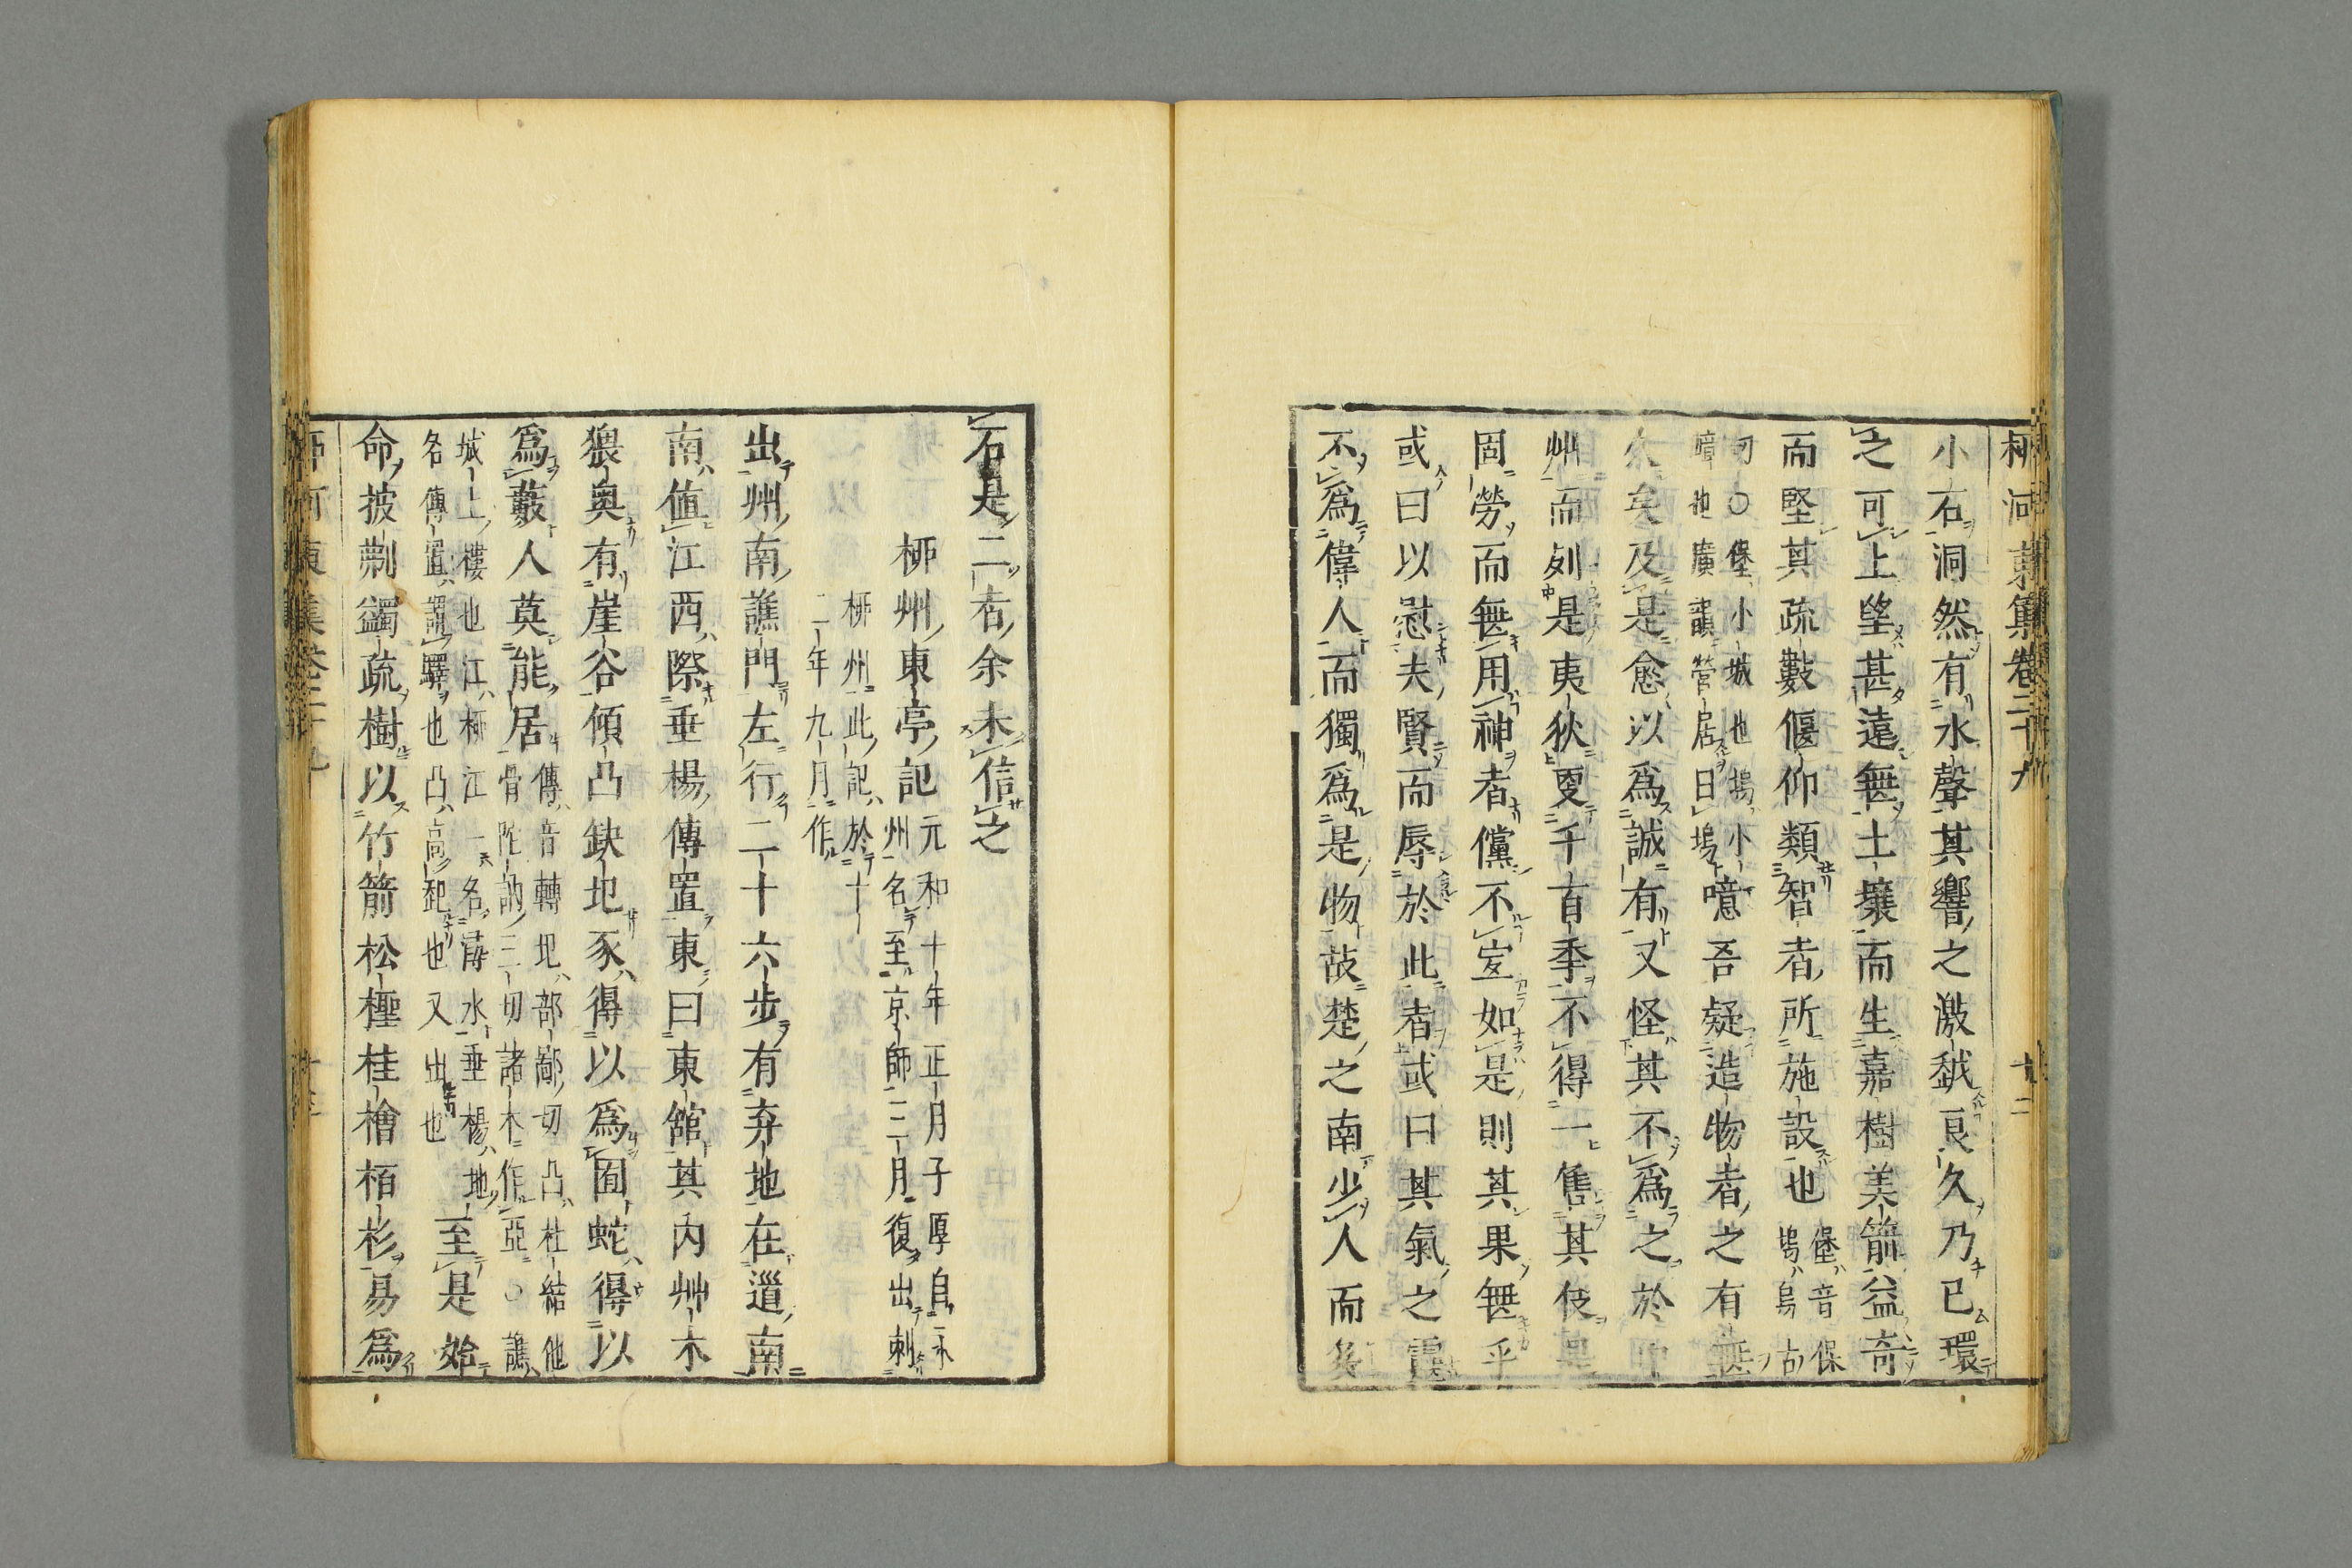 柳河東集卷二十九 十二
小石洞然有水聲其響之激越良久乃已環
之可上望甚遠無土壤而生嘉樹美箭益奇
而堅其疏數偃仰類智者所施設也 堡音保
塢烏古
切○堡小城也塢小
障也廣韻營居曰塢 噫吾疑造物者之有無
久矣及是愈以為誠有又怪其不為之於中
州而列是夷狄更千百年不得一售其伎是
固勞而無用神者儻不宜如是則其果無乎
或曰以慰夫賢而辱於此者或曰其氣之靈
不為偉人而獨為是物故楚之南少人而多
石是二者余未信之
柳州東亭記 元和十年正月子厚自永
州名至京師三月復出刺
柳州此記於十
二年九月作
出州南譙門左行二十六步有弃地在道南
南值江西際垂楊傳置東曰東館其內艸木
猥奧有崖谷傾凸缺圯豕得以為囿蛇得以
為藪人莫能居 傳音轉圯部鄙切凸杜結他
骨陀訥三切諸本作亞○譙
城上樓也江柳江一名潯水垂楊地
名傳置謂驛也凸高貌也又出也 至是始
命披剌蠲疏樹以竹箭松檉桂檜栢杉易為
柳河東集卷二十九